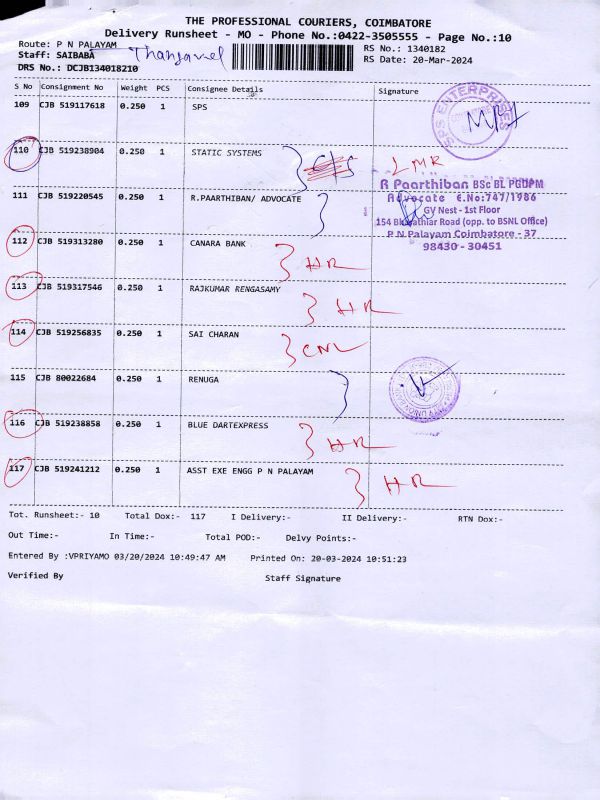 THE PROFESSIONAL COURIERS, COIMBATORE
Delivery Runsheet - MO - Phone No.:0422-3505555 - Page No.:10
Route: P N PALAYAM RS No.: 1340182
Staff: SAIBABA RS Date: 20-Mar-2024
DRS No.: DCJB134018210
S No Consignment No Weight PCS Consignee Details Signature
109 CJB 519117618 0.250 1 SPS
SPS ENTERPRISES
110 CJB 519238904 0.250 1 STATIC SYSTEMS LMR
111 CJB 519220545 0.250 1 R.PAARTHIBAN/ ADVOCATE
R Paarthiban BSc BL PGDPM
Advocate E.No:747/1986
GV Nest - 1st Floor
154 Bharathiar Road (opp. to BSNL Office)
P N Palayam Coimbatore - 37
98430 - 30451
112 CJB 519313280 0.250 1 CANARA BANK HR
113 CJB 519317546 0.250 1 RAJKUMAR RENGASAMY HR
114 CJB 519256835 0.250 1 SAI CHARAN CNL
115 CJB 80022684 0.250 1 RENUGA
116 CJB 519238858 0.250 1 BLUE DARTEXPRESS HR
117 CJB 519241212 0.250 1 ASST EXE ENGG P N PALAYAM HR
Tot. Runsheet:- 10 Total Dox:- 117 I Delivery:- II Delivery:- RTN Dox:-
Out Time:- In Time:- Total POD:- Delvy Points:-
Entered By :VPRIYAMO 03/20/2024 10:49:47 AM Printed On: 20-03-2024 10:51:23
Verified By Staff Signature